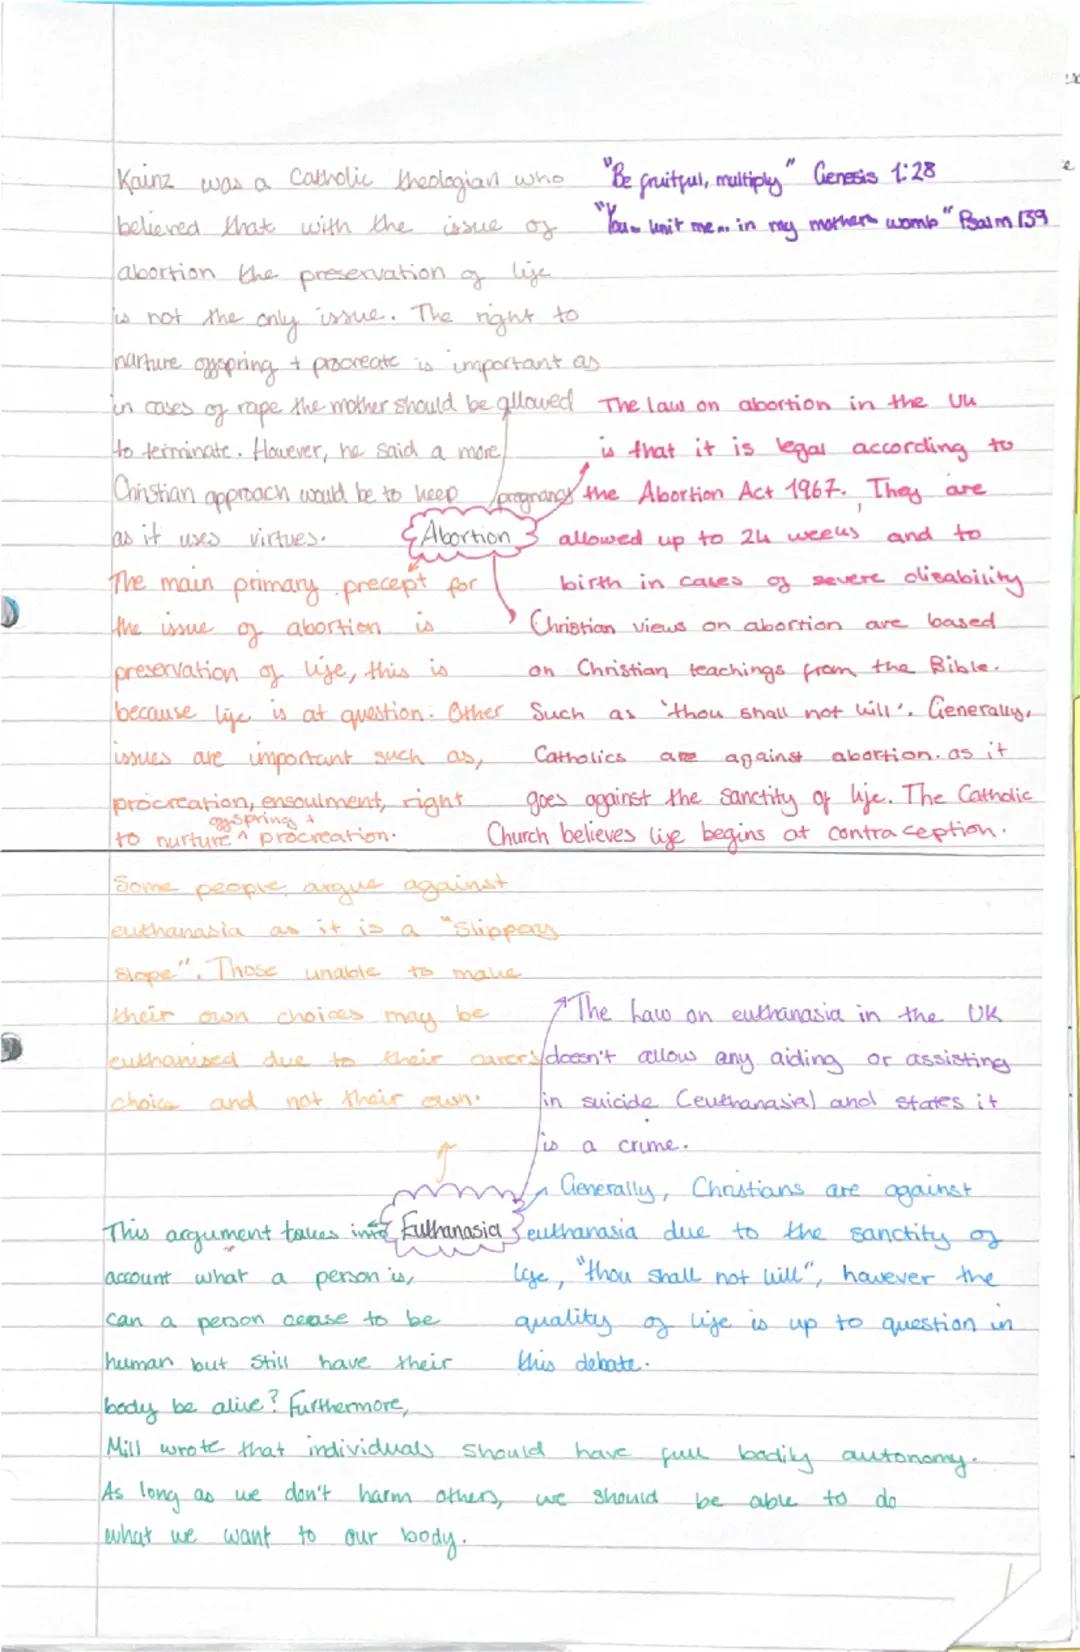 Kainz was a Catholic theologian who
believed that with the issue of
abortion the preservation of life
is not the only issue. The right to
nurture offspring + procreate is important as
in cases of rape the mother should be allowed
to terminate. However, he said a more
Christian approach would be to keep pregnancy
as it uses virtues.
"Be fruitful, multiply" Genesis 1:28
"You... knit me... in my mothers womb" Psalm 139
Abortion
The law on abortion in the UK
is that it is legal according to
the Abortion Act 1967. They are
allowed up to 24 weeks and to
birth in cases of severe disability
The main primary precept for
the issue of abortion is
preservation of life, this is
because life is at question. Other
issues are important such as,
procreation, ensoulment, right
to nurture offspring + procreation.
Christian views on abortion are based
on Christian teachings from the Bible.
Such as 'thou shall not kill'. Generally,
Catholics are against abortion. as it
goes against the sanctity of life. The Catholic
Church believes life begins at contraception.
Some people argue against
euthanasia as it is a "Slippery
Slope". Those unable to make
their own choices may be
euthanised due to their carers
choice and not their own.
The law on euthanasia in the UK
doesn't allow any aiding or assisting
in suicide (euthanasia) and states it
is a crime.
Euthanasia
Generally, Christians are against
euthanasia due to the sanctity of
life, "thou shall not kill", however the
quality of life is up to question in
this debate.
This argument takes into
account what a person is,
can a person cease to be
human but still have their
body be alive? Furthermore,
Mill wrote that individuals should have full bodily autonomy.
As long as we don't harm others, we should be able to do
what we want to our body.